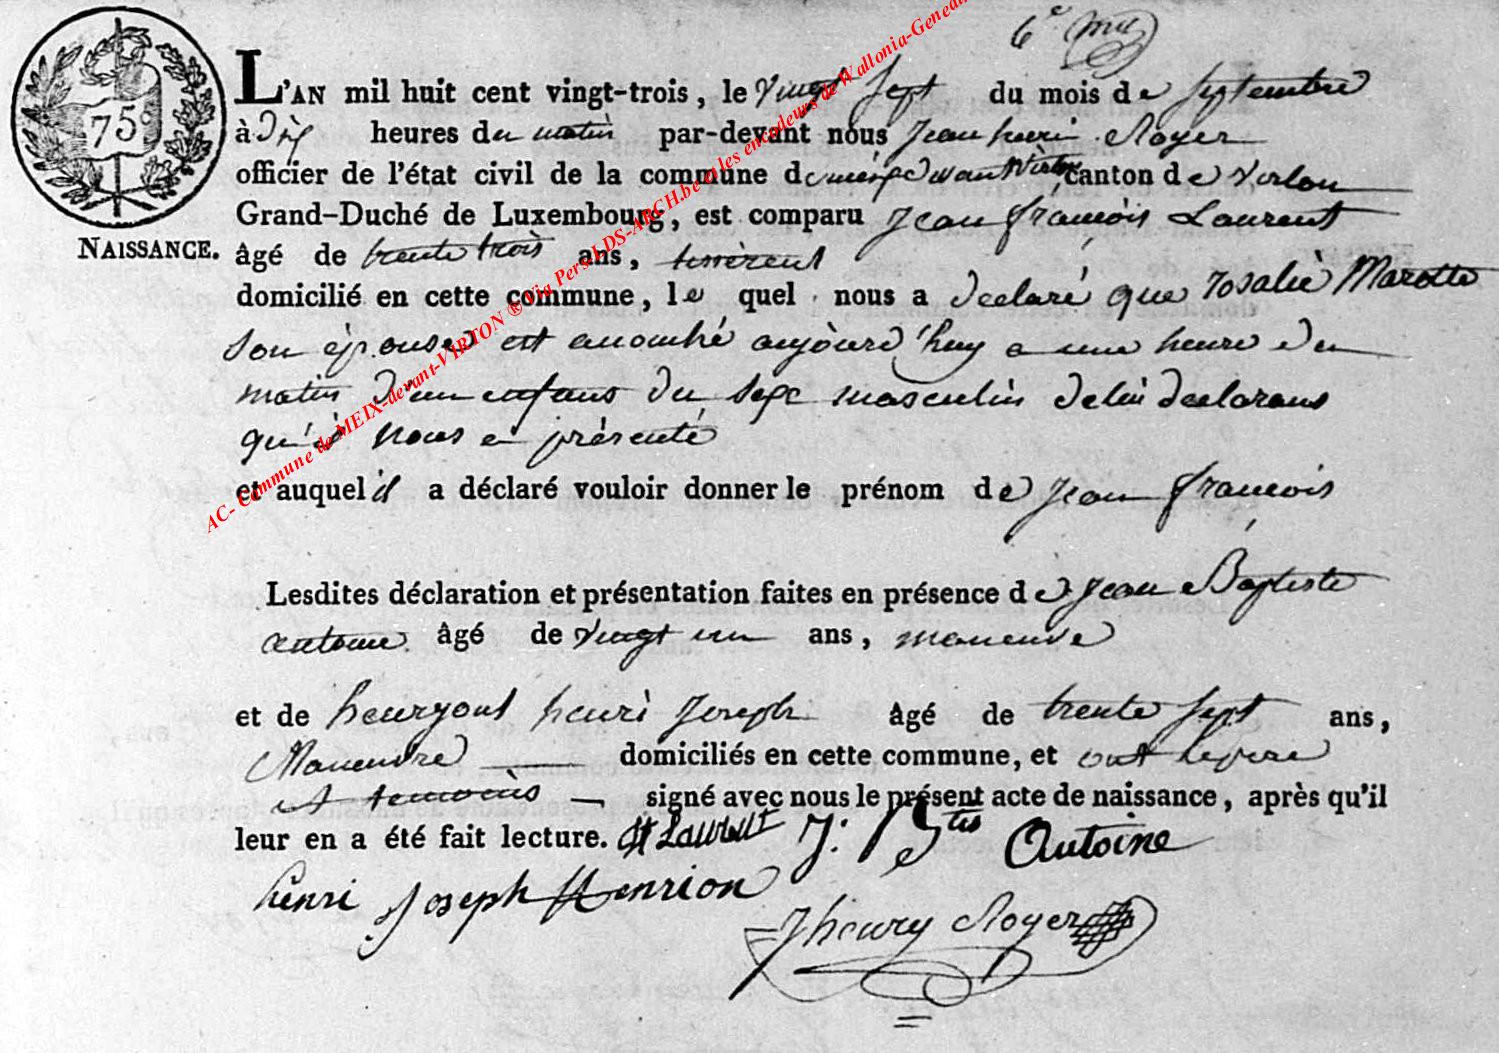 6e
75c
L'AN mil huit cent vingt-trois, le vingt sept du mois de septembre
à dix heures du matin par-devant nous Jean henri Royer
officier de l'état civil de la commune de meix devant Virton canton de virton
Grand-Duché de Luxembourg, est comparu Jean françois Laurent
NAISSANCE.
âgé de trente trois ans,
domicilié en cette commune, le quel nous a declaré que rosalie Marotte
son épouse est accouché aujourd'huy a une heure du
matin d'un enfans du sexe masculin de lui declarans
qu'il nous a présenté
et auquel il a déclaré vouloir donner le prénom de Jean françois
Lesdites déclaration et présentation faites en présence de Jean Baptiste
antoine âgé de vingt un ans, maneuvre
et de henryont henri Joseph âgé de trente sept ans,
Maneuvre domiciliés en cette commune, et ont le pere
et temoins signé avec nous le présent acte de naissance, après qu'il
leur en a été fait lecture. Laurent J: Btis Antoine
henri Joseph Henrion
Jhenry Royer
AC- Commune de MEIX-devant-VIRTON ® Via Pers LDS-ARCH.be et les encodeurs de Wallonia-Geneal